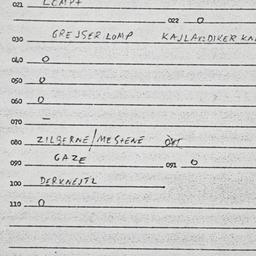 021 LEMPT
022 0
030 GREJSER LOMP KAJLA
040 0
050 0
060 0
070 –
080 ZILBERNE/MESTENE
090 GAZE 091 0
100 DERVNEJTL
110 0